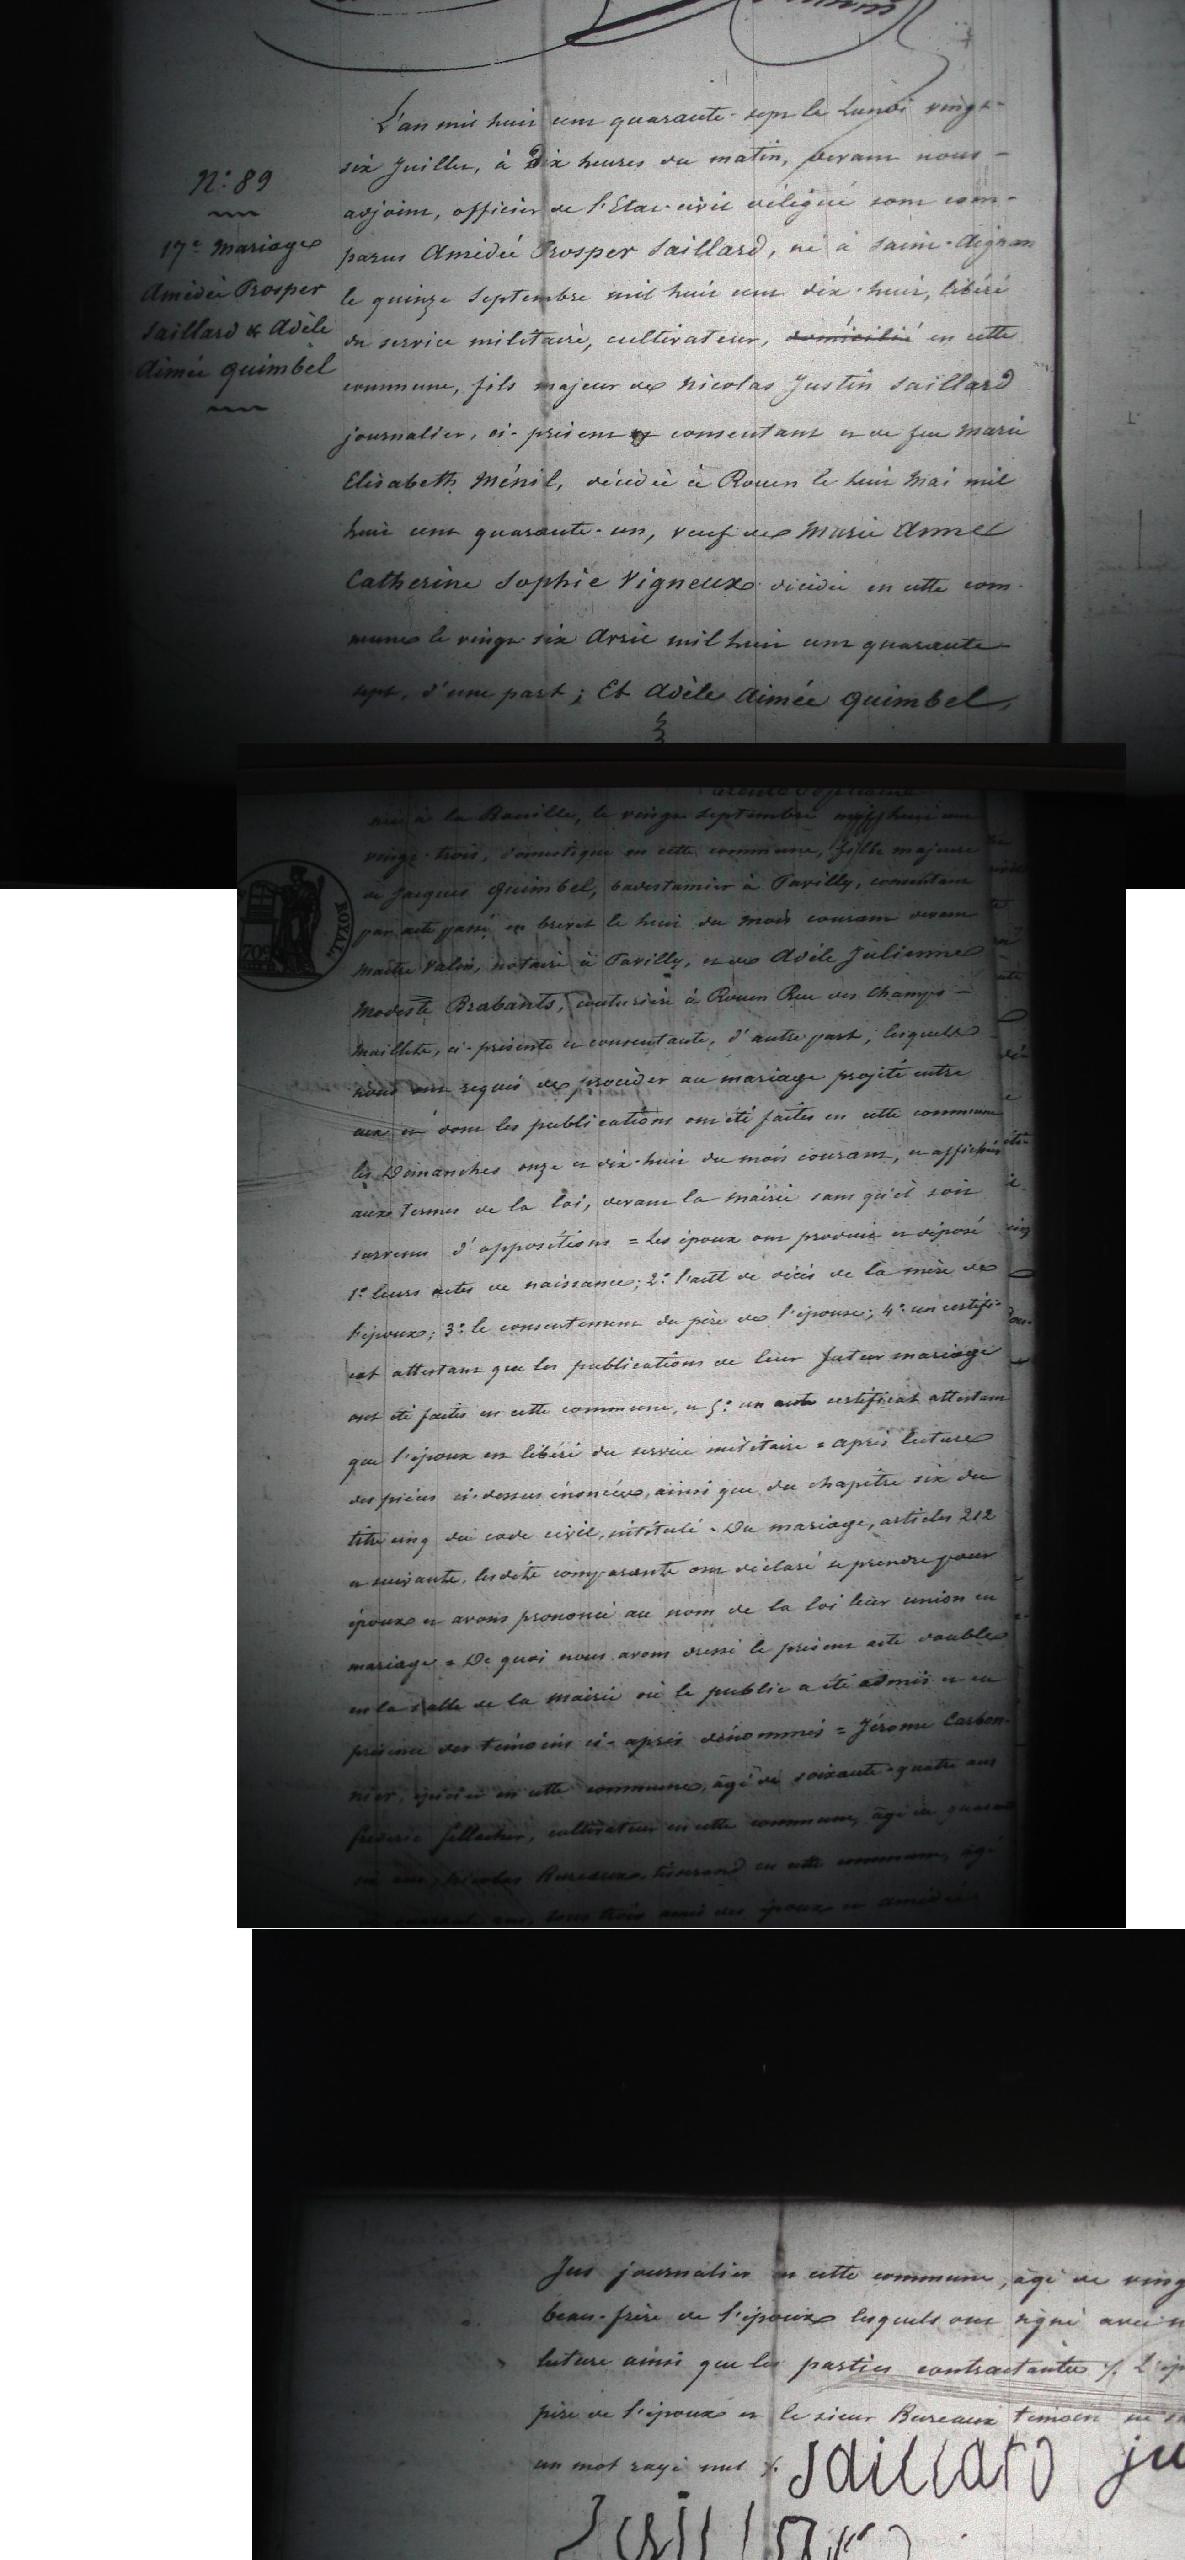 N.° 89
17e mariage
Amédée Prosper
Saillard & Adèle
Aimée Quimbel
L'an mil huit cent quarante-sept le Lundi vingt-
six Juillet, à Dix heures du matin, devant nous
adjoint, officier de l'Etat-civil délégué sont com-
parus Amédée Prosper Saillard, né à Saint-Aignan
le quinze Septembre mil huit cent dix-huit, libéré
du service militaire, cultivateur, domicilié en cette
commune, fils majeur de Nicolas Justin Saillard
journalier, ci-présent et consentant et de feu Marie
Elisabeth Ménil, décédée à Rouen le huit Mai mil
huit cent quarante-un, veuf de Marie Anne
Catherine Sophie Vigneux décédée en cette com-
mune le vingt-six Avril mil huit cent quarante
sept, d'une part ; Et Adèle Aimée Quimbel,
née à la Bouille, le vingt septembre mil huit cent
vingt-trois, domestique en cette commune, fille majeure
de Jacques Quimbel, badestamier à Pavilly, consentant
par acte passé en brevet le huit du mois courant devant
Maître Valin, notaire à Pavilly, et de Adèle Julienne
Modeste Brabants, couturière à Rouen Rue des Champs-
Maillets, ci-présente et consentante, d'autre part ; lesquels
nous ont requis de procéder au mariage projeté entre
eux et dont les publications ont été faites en cette commune
les Dimanches onze et dix-huit du mois courant, et affichées
aux termes de la loi, devant la mairie sans qu'il soit
survenu d'oppositions = Les époux ont produit et déposé
1° leurs actes de naissance ; 2° l'acte de décès de la mère de
l'époux ; 3° le consentement du père de l'épouse ; 4° un certifi-
cat attestant que les publications de leur futur mariage
ont été faites en cette commune, et 5° un certificat attestant
que l'époux est libéré du service militaire = après lecture
des pièces ci-dessus énoncées, ainsi que du chapitre six du
titre cinq du code civil, intitulé = Du mariage, articles 212
et suivants, lesdits comparants ont déclaré se prendre pour
époux et avons prononcé au nom de la loi leur union en
mariage = De quoi nous avons dressé le présent acte double
en la salle de la mairie où le public a été admis et en
présence des témoins ci-après dénommés = Jérome Carbon-
nier, épicier en cette commune, âgé de soixante-quatre ans
frédéric, cultivateur en cette commune, âgé de
ans, Nicolas Bureaux, tisserand en cette commune, âgé
ans, tous trois amis des époux et Amédée
Jus journalier en cette commune, âgé de vingt
beau-frère de l'époux lesquels ont signé avec
lecture ainsi que les parties contractantes
père de l'époux et le sieur Bureaux témoin
un mot rayé nul
Saillard ju
Saillard
ROYAL
709